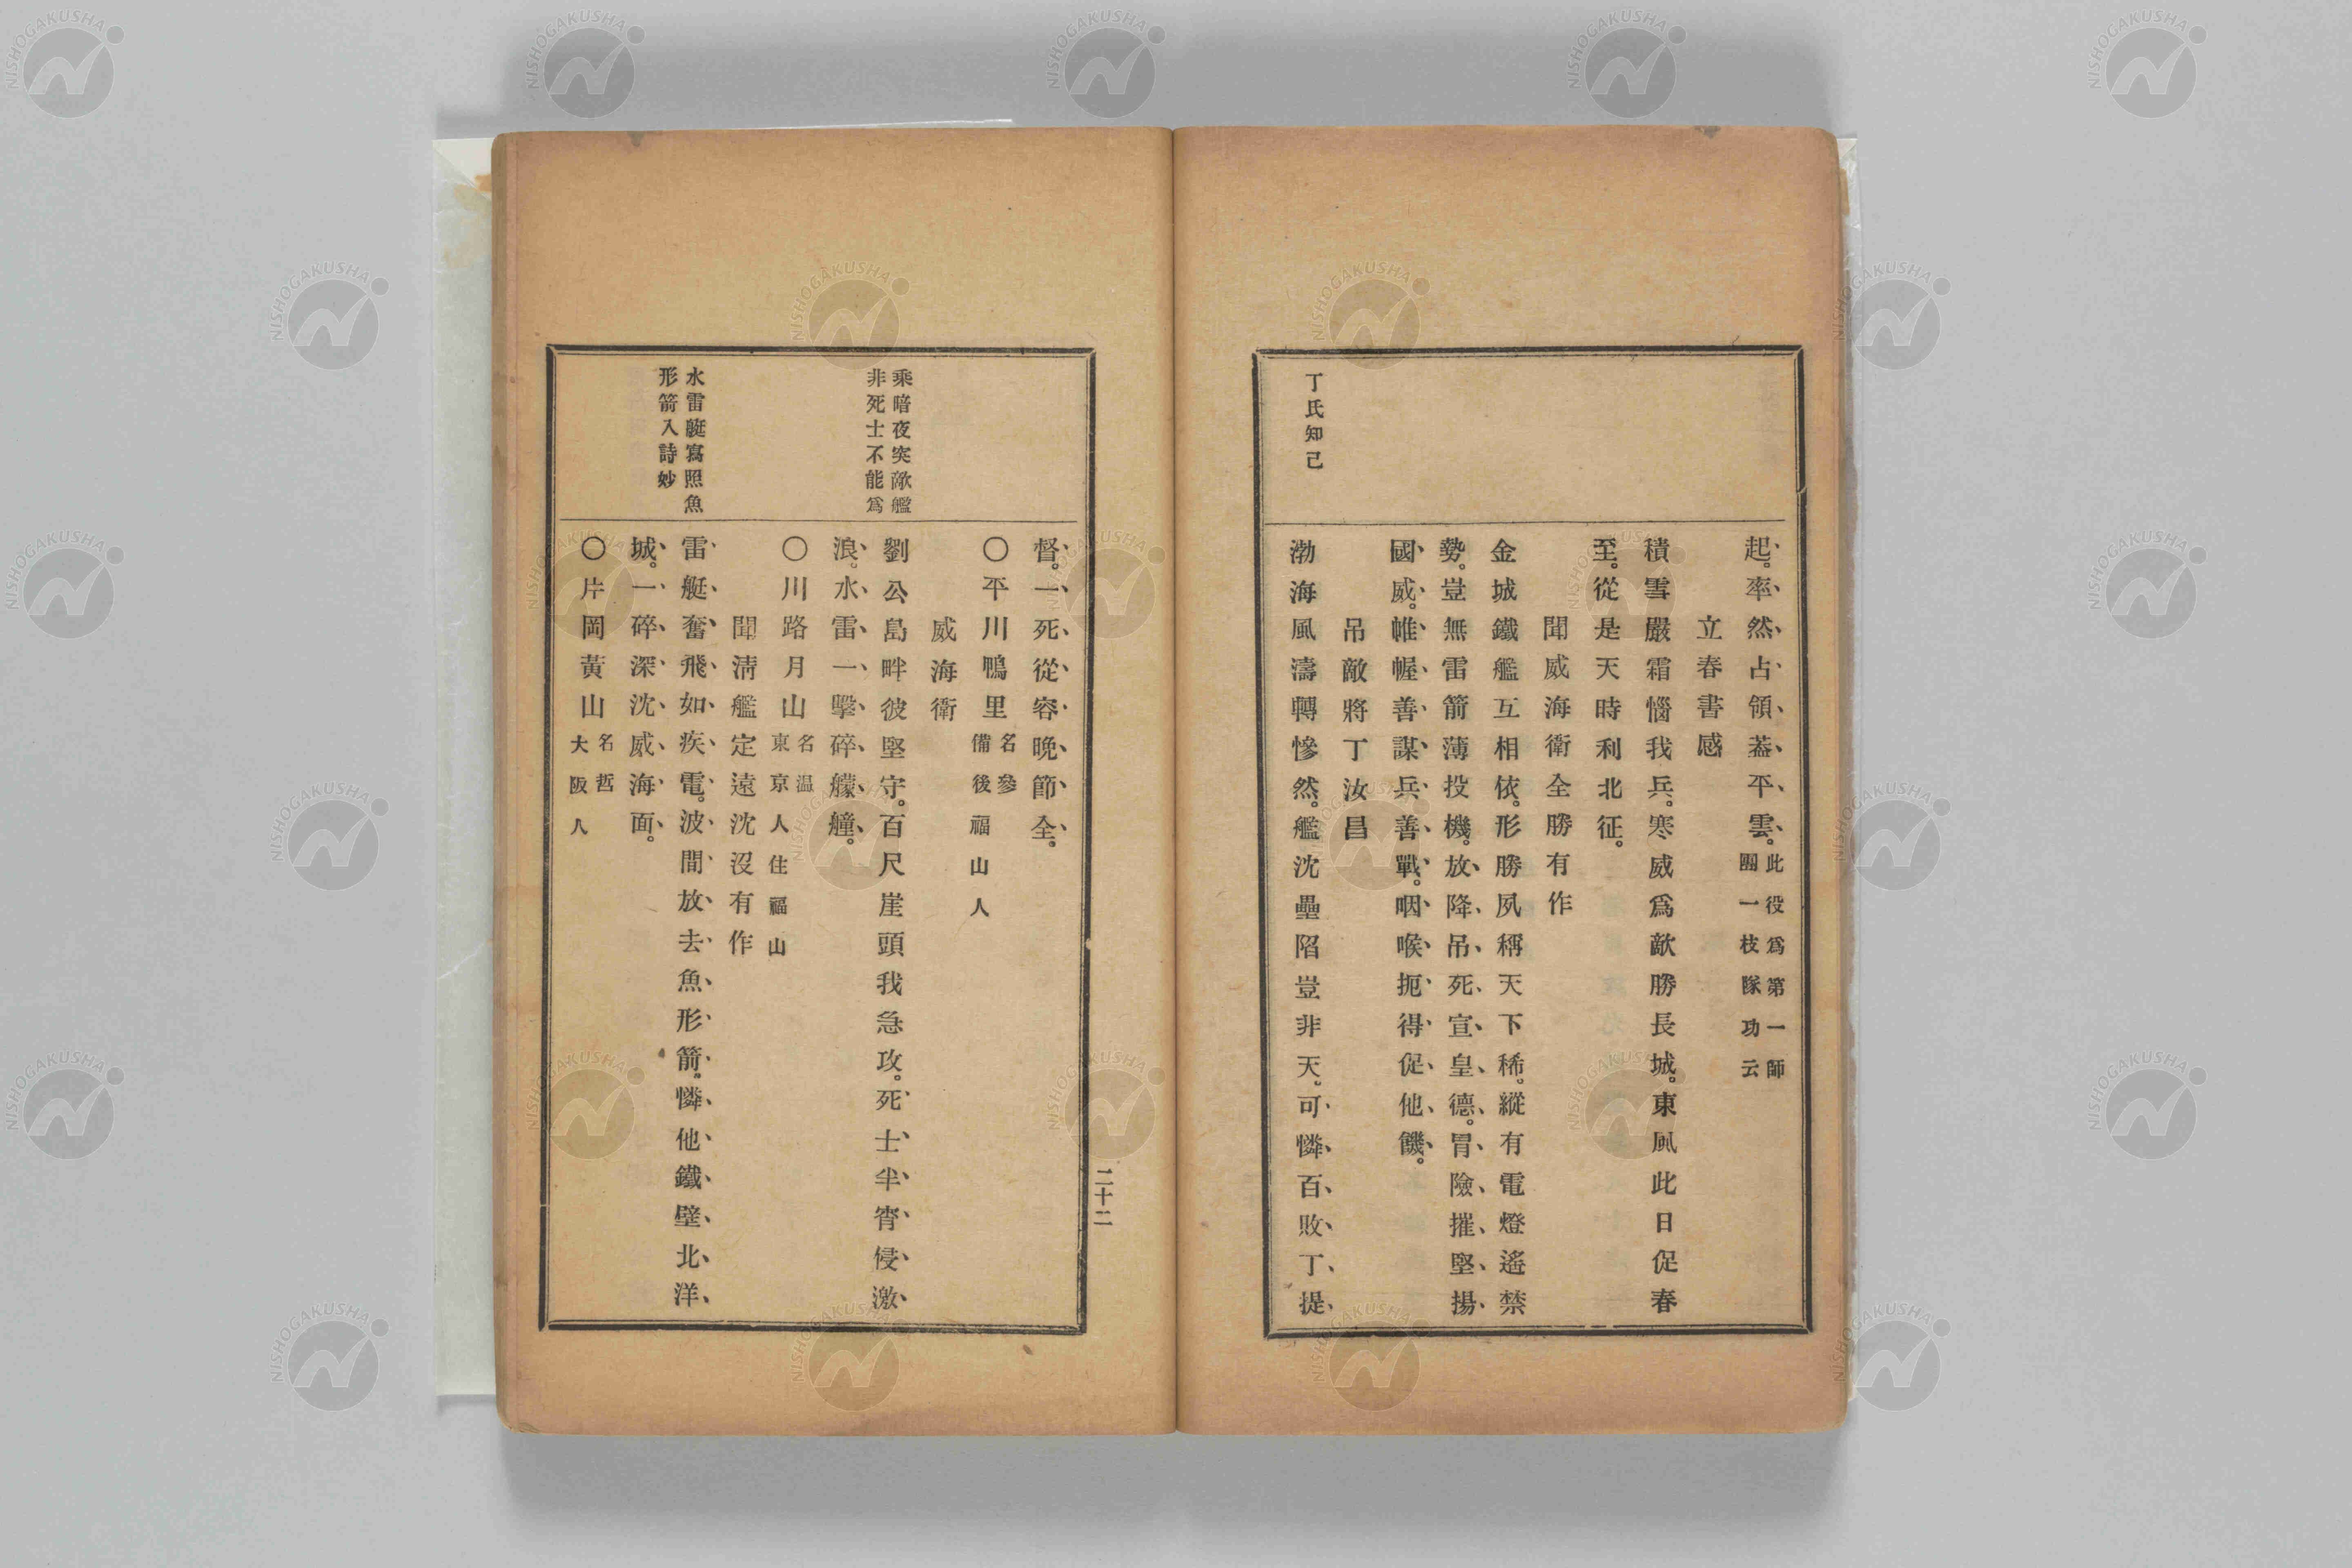 起。率然占領葢平雲。此役爲第一師
團一枝隊功云
立春書感
積雪嚴霜惱我兵。寒威爲敵勝長城。東風此日促春
至。從是天時利北征。
聞威海衛全勝有作
金城鐵艦互相依。形勝夙稱天下稀。縱有電燈遙禁
勢。豈無雷箭薄投機。放降吊死宣皇德。冒險摧堅揚
國威。帷幄善謀兵善戰。咽喉扼得促他饑。
吊敵將丁汝昌
丁氏知己
渤海風濤轉慘然。艦沈壘陷豈非天。可憐百敗丁提
督。一死從容晩節全。
〇平川鴨里名參
備後福山人
威海衛
乘暗夜突敵艦
非死士不能爲
劉公島畔彼堅守。百尺崖頭我急攻。死士半宵侵激
浪。水雷一擊碎艨艟。
〇川路月山名温
東京人住福山
聞淸艦定遠沈沒有作
水雷艇寫照魚
形箭入詩妙
雷艇奮飛如疾電。波間放去魚形箭。憐他鐵壁北洋
城。一碎深沈威海面。
〇片岡黃山名哲
大阪人
二十二
NISHOGAKUSHA